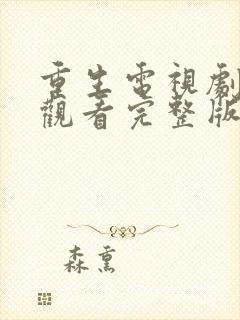 重生電視劇
觀看完整版
森熏